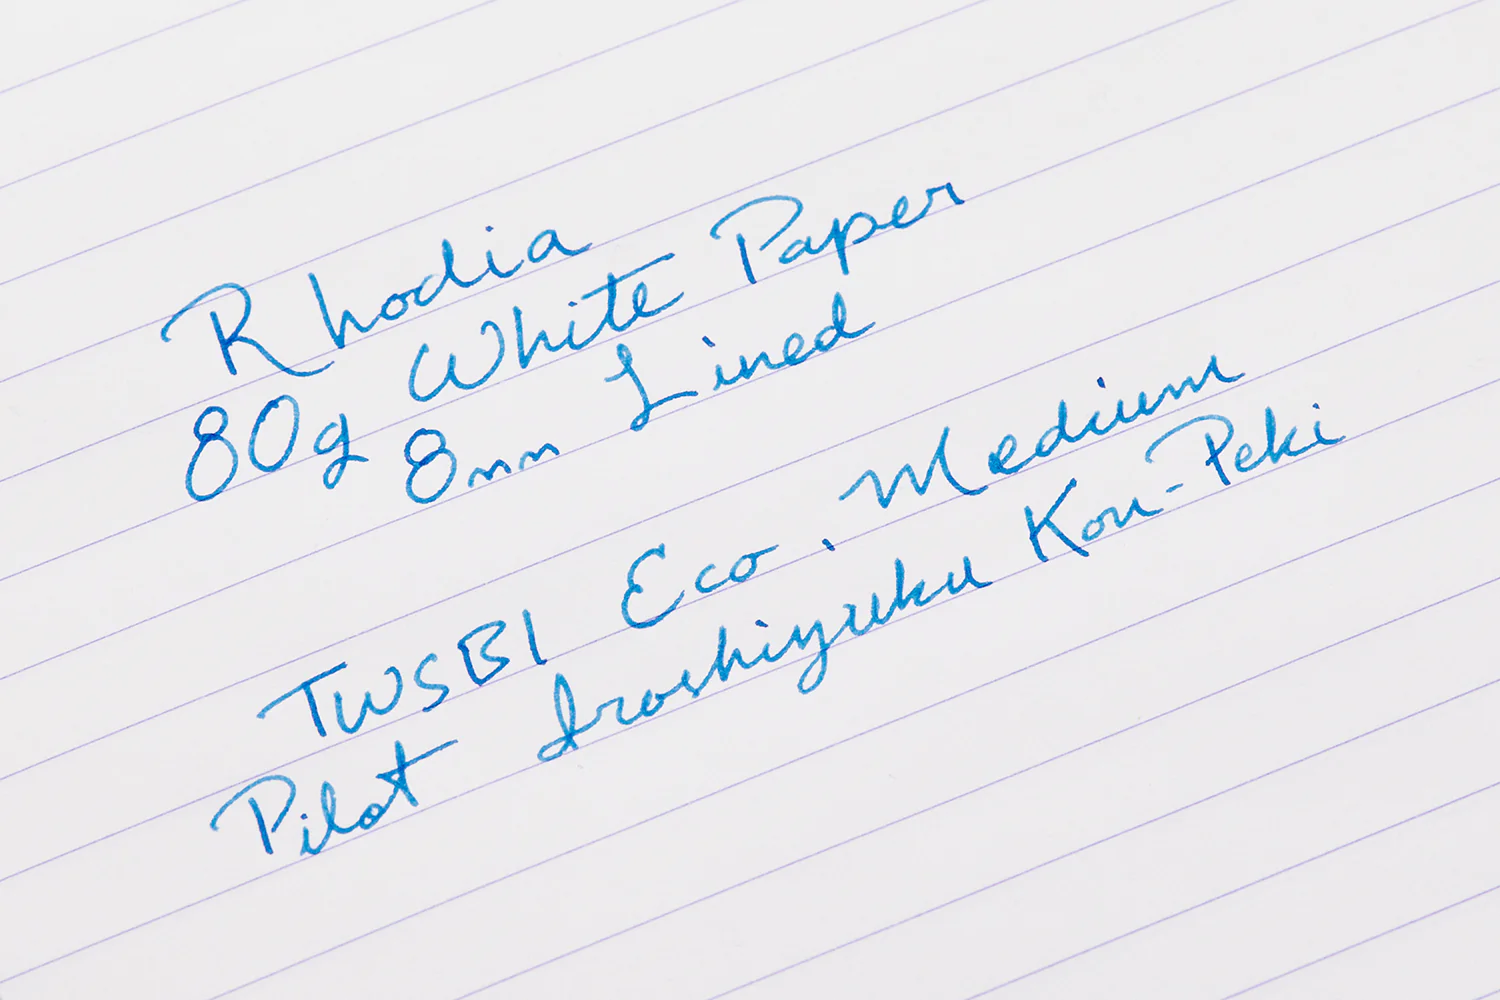 Rhodia
80g White Paper
8mm Lined
TWSBI Eco. Medium
Pilot Iroshiyuku Kon-Peki